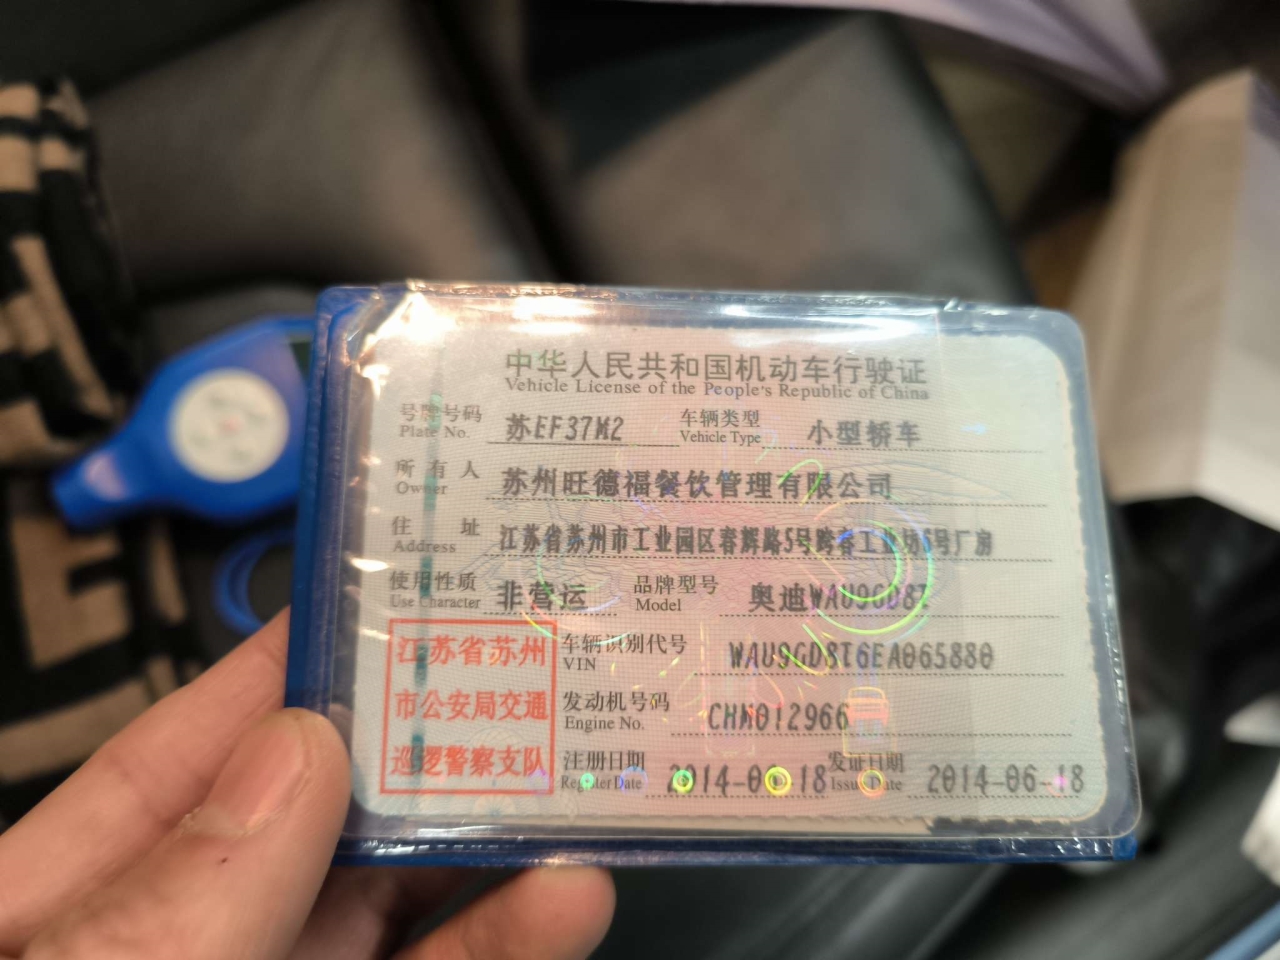 中华人民共和国机动车行驶证
Vehicle License of the People's Republic of China
号牌号码 苏EF37M2 车辆类型 小型轿车
Plate No. Vehicle Type
所有人 苏州旺德福餐饮管理有限公司
Owner
住址 江苏省苏州市工业园区春辉路5号跨春工业坊6号厂房
Address
使用性质 非营运 品牌型号 奥迪WAU9GD8T
Use Character Model
江苏省苏州
市公安局交通
巡逻警察支队
车辆识别代号 WAU9GD8T6EA065880
VIN
发动机号码 CHM012966
Engine No.
注册日期 发证日期 2014-06-18
Register Date Issue Date